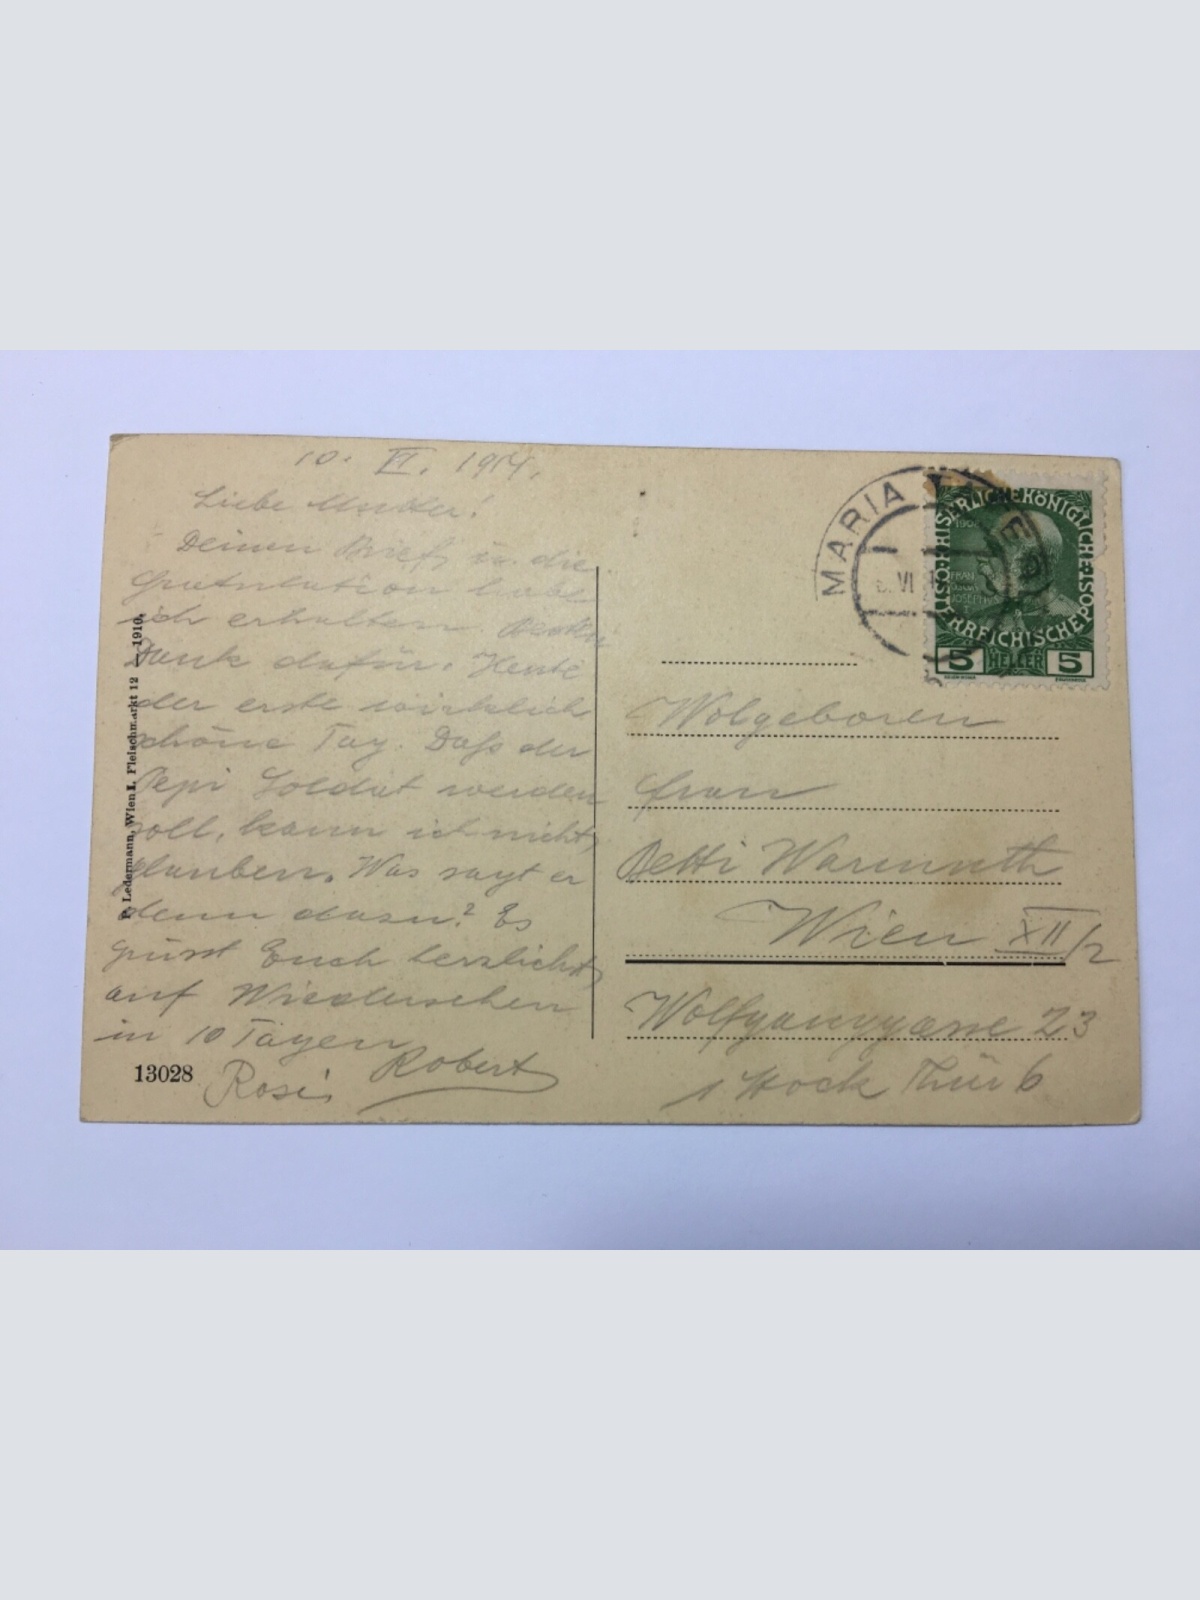 10. VI. 1914.
Liebe Mutter!
Deinen Brief u. die
Gratulation habe
ich erhalten.
Dank dafür. Heute
der erste wirklich
schöne Tag. Daß der
Pepi Soldat werden
soll, kann ich nicht
glauben. Was sagt er
denn dazu? Es
grüsst Euch herzlichst,
auf Wiedersehen
in 10 Tagen
Robert
Rosi
13028
P. Ledermann, Wien I, Fleischmarkt 12 — 1910.
MARIA
VI
KAISERLICHE KÖNIGLICHE ÖSTERREICHISCHE POST
1908
FRANZ JOSEPH I
5 HELLER 5
Wolgeboren
Frau
Betti Warmuth
Wien XII/2
Wolfganggasse 23
1 Stock Thür 6